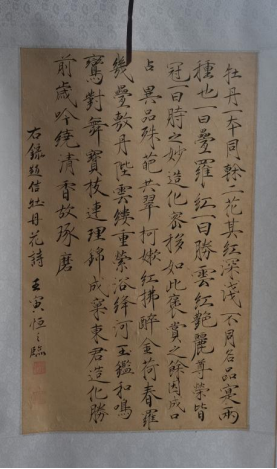 牡丹一本同榦二花其紅深淺不同名品寔兩
種也一曰疊羅紅一曰勝雲紅艷麗尊榮皆
冠一時之妙造化密移如此褒賞之餘因成口
占 異品殊葩共翠柯嫩紅拂醉金荷春羅
幾疊敷丹陛雲縷重縈浴絳河玉鑑和鳴
鸞對舞寶枝連理錦成窠東君造化勝
前歲吟繞清香故琢磨
右錄題信牡丹花詩 壬寅恒之臨